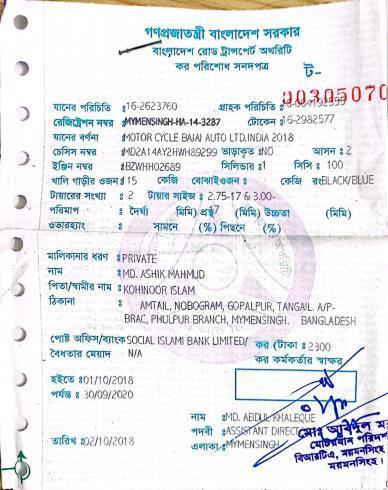 গণপ্রজাতন্ত্রী বাংলাদেশ সরকার
বাংলাদেশ রোড ট্রান্সপোর্ট অথরিটি
কর পরিশোধ সনদপত্র
ট-
00305070
যানের পরিচিতি :16-2623760 গ্রাহক পরিচিতি
রেজিষ্ট্রেশন নম্বর :MYMENSINGH-HA-14-3287 টোকেন :16-2982577
যানের বর্ণনা :MOTOR CYCLE BAJAJ AUTO LTD.INDIA 2018
চেসিস নম্বর :MD2A14AY2HWH89299 ভাড়াকৃত :NO আসন : 2
ইঞ্জিন নম্বর :BZWHH02689 সিলিন্ডার :1 সিসি : 100
খালি গাড়ীর ওজন :15 কেজি বোঝাইওজন : কেজি রং:BLACK/BLUE
টায়ারের সংখ্যা : 2 টায়ার সাইজ : 2.75-17 & 3.00-
পরিমাপ : দৈর্ঘ্য (মিমি) প্রস্থ 17 (মিমি) উচ্চতা (মিমি)
ওভারহ্যাং : সামনে (%) পিছনে (%)
মালিকানার ধরণ :PRIVATE
নাম :MD. ASHIK MAHMUD
পিতা/স্বামীর নাম :KOHINOOR ISLAM
ঠিকানা : AMTAIL, NOBOGRAM, GOPALPUR, TANGAIL. A/P-
BRAC, PHULPUR BRANCH, MYMENSINGH. BANGLADESH
পোষ্ট অফিস/ব্যাংক SOCIAL ISLAMI BANK LIMITED/ কর (টাকা : 2300
বৈধতার মেয়াদ N/A কর কর্মকর্তার স্বাক্ষর
হইতে :01/10/2018
পর্যন্ত : 30/09/2020
নাম :MD. ABDUL KHALEQUE
পদবী :ASSISTANT DIRECT
তারিখ :02/10/2018 এলাকা:MYMENSINGH
মোটরযান পরিদর্শ
বিআরটিএ, ময়মনসিংহ
ময়মনসিংহ।